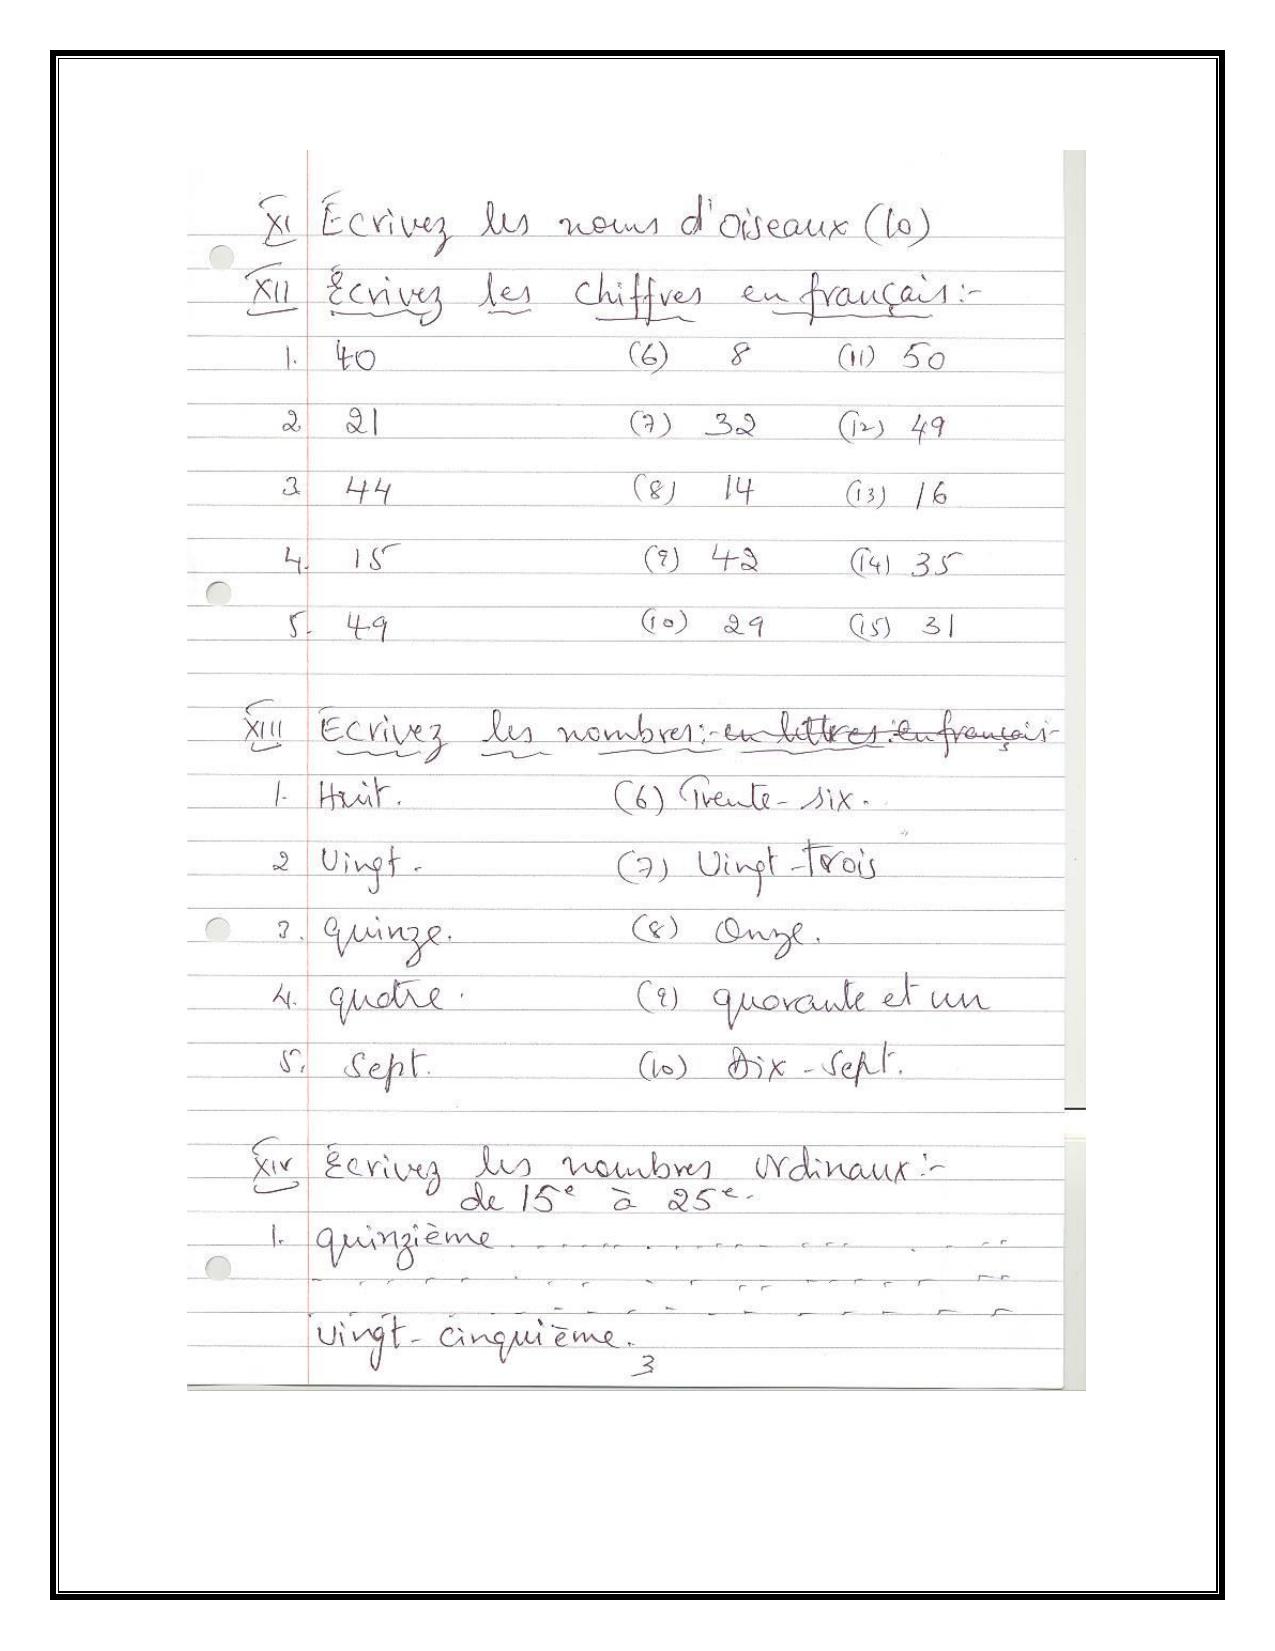 XI Écrivez les noms d'oiseaux (10)
XII Écrivez les chiffres en français:-
1. 40 (6) 8 (11) 50
2 21 (7) 32 (12) 49
3 44 (8) 14 (13) 16
4. 15 (9) 42 (14) 35
5. 49 (10) 29 (15) 31
XIII Ecrivez les nombres:- en lettres: en français-
1. Huit. (6) Trente-six.
2 Vingt. (7) Vingt-Trois
3. quinze. (8) Onze.
4. quatre. (9) quarante et un
5. Sept. (10) Dix-sept.
XIV Écrivez les nombres ordinaux:-
de 15e à 25e.
1. quinzième
Vingt-cinquième.
3